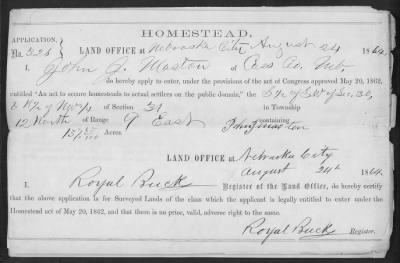 HOMESTEAD.
APPLICATION
No. 326
LAND OFFICE at Nebraska City August 24 1864.
I, John J. Maston of Cass Co. Neb.
do hereby apply to enter, under the provisions of the act of Congress approved May 20, 1862,
entitled "An act to secure homesteads to actual settlers on the public domain," the S½ of SW of Sec. 30,
& N½ of NW¼ of Section 31 in Township
12 North of Range 9 East containing
157 Acres. John J Maston
LAND OFFICE at Nebraska City
August 24th 1864.
I, Royal Buck Register of the Land Office, do hereby certify
that the above application is for Surveyed Lands of the class which the applicant is legally entitled to enter under the
Homestead act of May 20, 1862, and that there is no prior, valid, adverse right to the same.
Royal Buck Register.